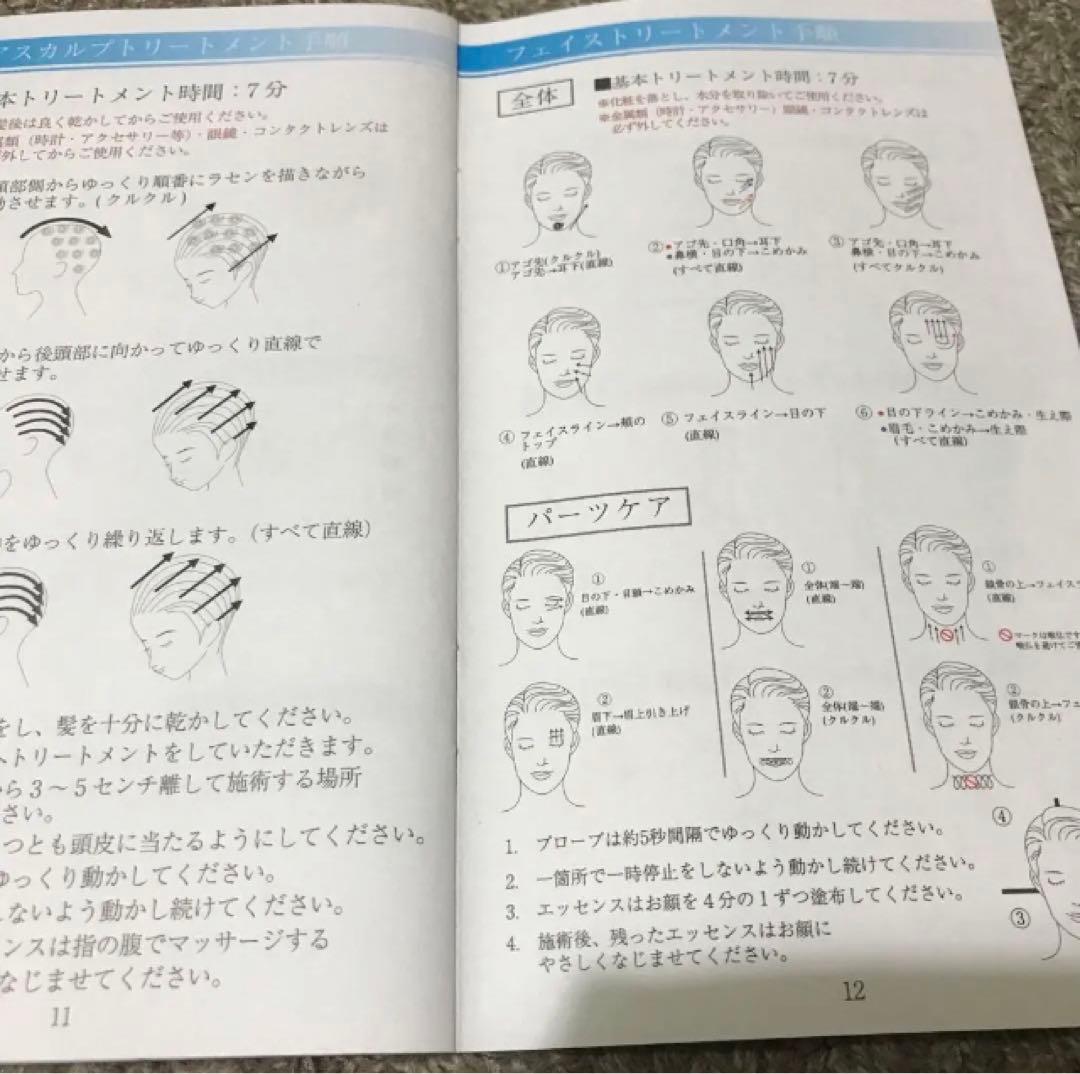 アスカルプトリートメント手順
本トリートメント時間：7分
髪後は良く乾かしてからご使用ください。
属類（時計・アクセサリー等）・眼鏡・コンタクトレンズは
ず外してからご使用ください。
頭部側からゆっくり順番にラセンを描きながら
動させます。(クルクル)
から後頭部に向かってゆっくり直線で
せます。
をゆっくり繰り返します。(すべて直線)
をし、髪を十分に乾かしてください。
へトリートメントをしていただきます。
から3～5センチ離して施術する場所
さい。
つとも頭皮に当たるようにしてください。
ゆっくり動かしてください。
しないよう動かし続けてください。
センスは指の腹でマッサージする
なじませてください。
11
フェイストリートメント手順
全体
■基本トリートメント時間：7分
※化粧を落とし、水分を取り除いてご使用ください。
※金属類（時計・アクセサリー）眼鏡・コンタクトレンズは
必ず外してください。
①アゴ先(クルクル)
アゴ先→耳下(直線)
②●アゴ先・口角→耳下
●鼻横・目の下→こめかみ
(すべて直線)
③アゴ先・口角→耳下
鼻横・目の下→こめかみ
(すべてクルクル)
④フェイスライン→頬の
トップ
(直線)
⑤フェイスライン→目の下
(直線)
⑥●目の下ライン→こめかみ・生え際
●眉毛・こめかみ→生え際
(すべて直線)
パーツケア
①
目の下・目頭→こめかみ
(直線)
②
眉下→眉上引き上げ
(直線)
①
全体(端〜端)
(直線)
②
全体(端〜端)
(クルクル)
①
鎖骨の上→フェイス
(直線)
マークは喉仏です
喉仏を避けてご
②
鎖骨の上→フェ
(クルクル)
1. プローブは約5秒間隔でゆっくり動かしてください。
2. 一箇所で一時停止をしないよう動かし続けてください。
3. エッセンスはお顔を4分の1ずつ塗布してください。
4. 施術後、残ったエッセンスはお顔に
やさしくなじませてください。
④
③
12